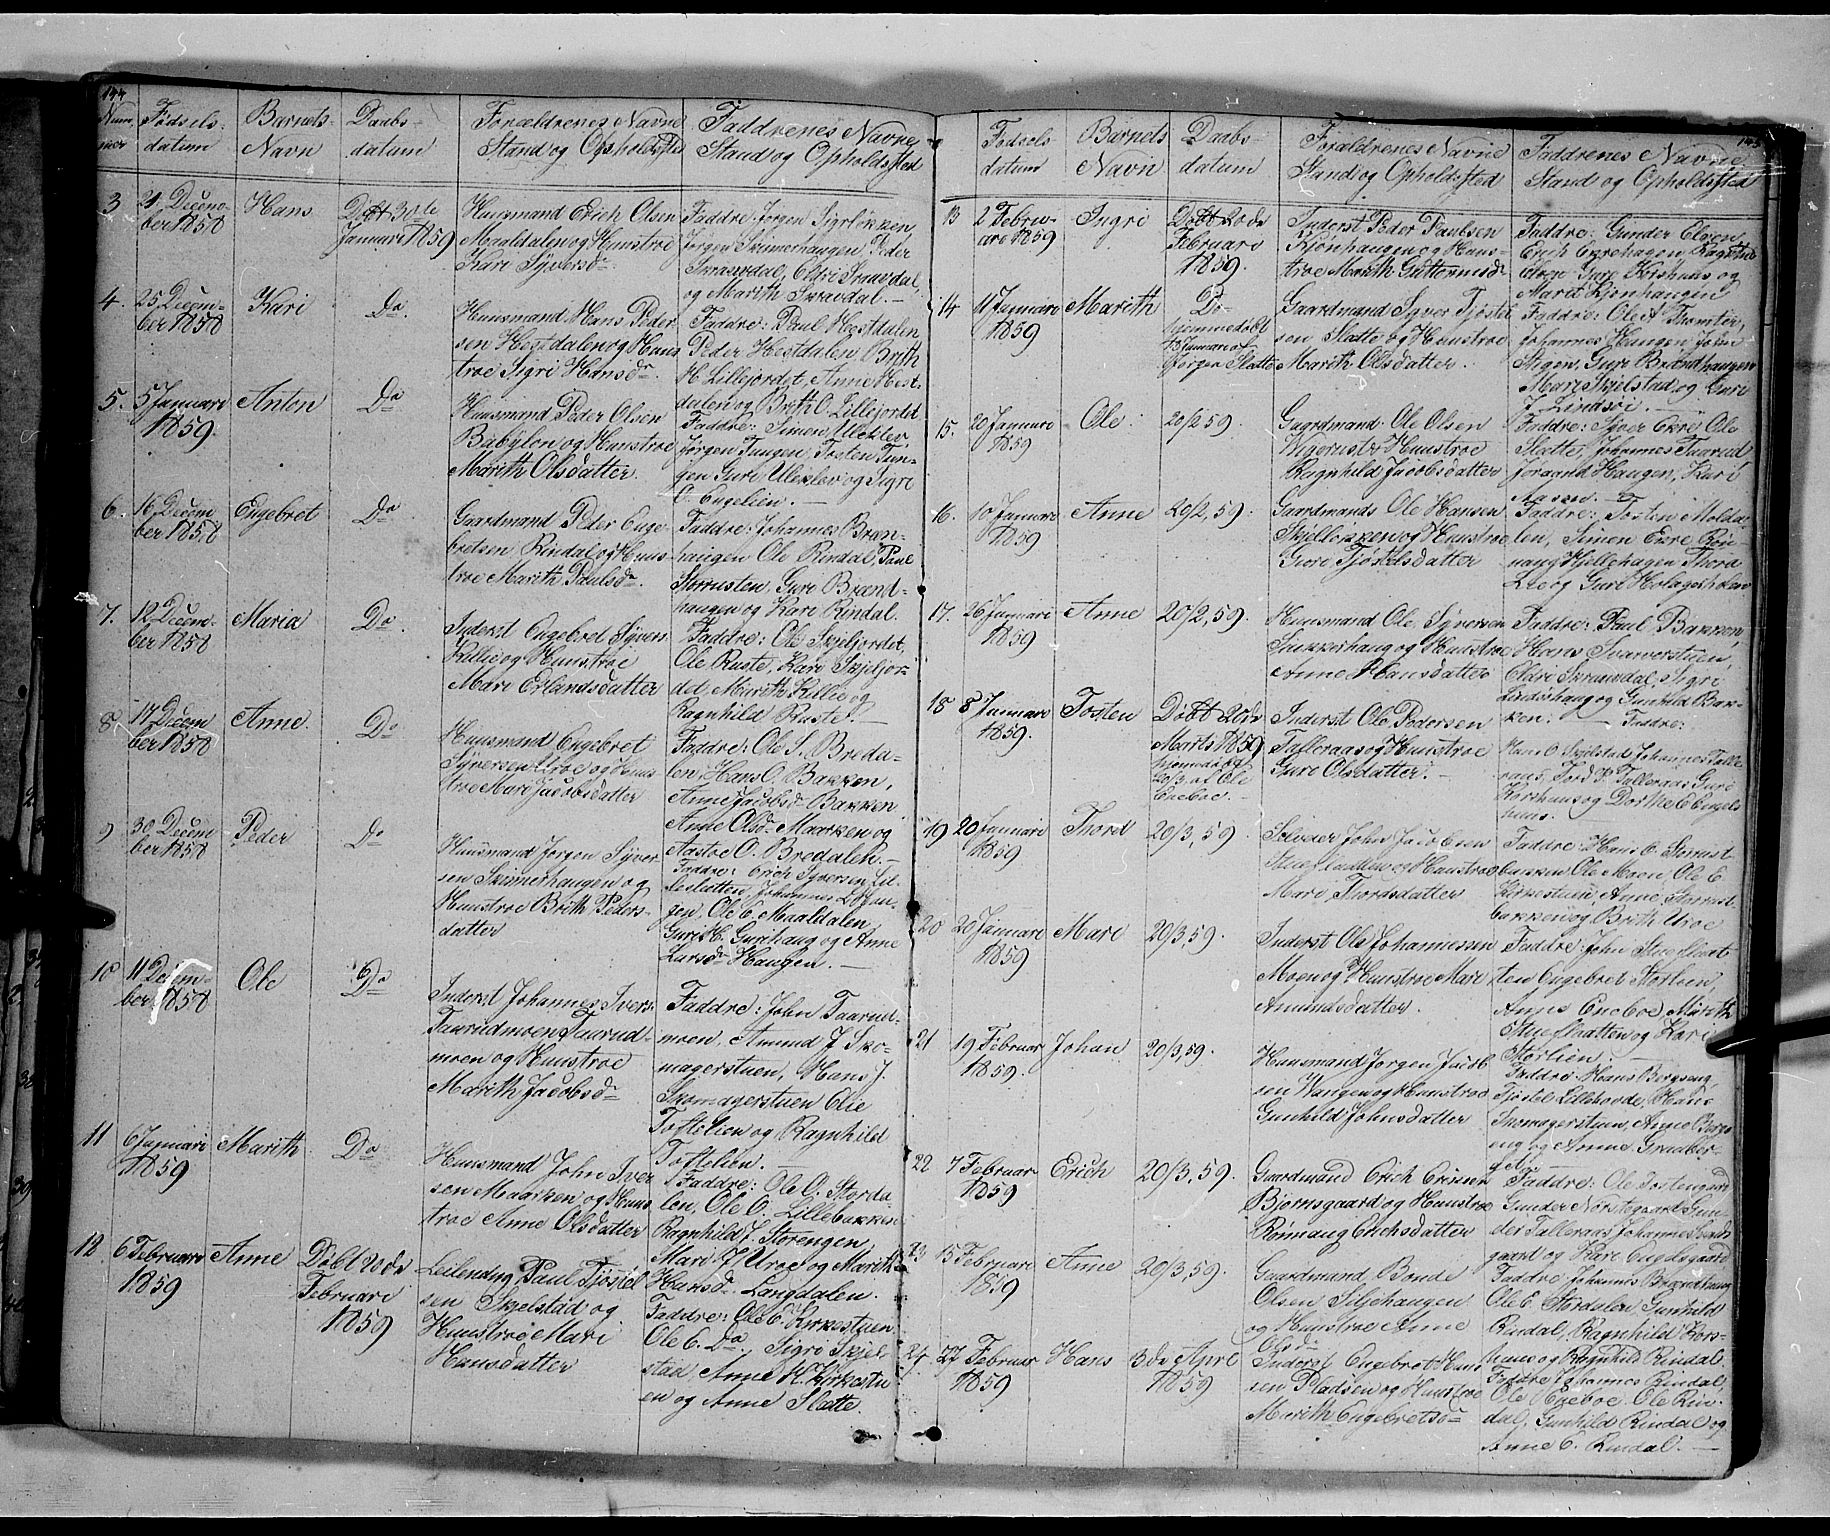 144
Num
mer
Fødsels-
datum
Barnets
Navn
Daabs-
datum
Forældrenes Navne
Stand og Opholdsste
Faddrenes Navne
Stand og Opholdssted
3
21 Decem-
ber 1858
Hans
Døbt 30te
Januari 1859
Huusmand Erich Olsen
Maaldalen og Huustroe
Kari Syversdr
Faddre: Jørgen Sigrløkken,
Jørgen Skimerhaugen, Peder
Skravdal, Eldri Skravdal,
og Marith Skravdal. —
4.
25 Decem-
ber 1858
Kari
Do.
Huusmand Hans Peder
sen Hestdalen og Huus
troe Sigri Hansdr.
Faddre: Paul Hestdalen,
Peder Hestdalen, Brith
H. Lillejordet, Anne Hest-
dalen og Brith O. Lillejordet
5.
5 Januari
1859.
Anton
Do
Huusmand Peder Olsen
Babylon og Huustroe
Marith Olsdatter.
Faddre: Simen Uleklev
Jørgen Tungen, Tosten Tun-
gen Guri Uleklev og Sigri
O. Engelien. —
6.
16 Decem
ber 1858
Engebret
Do.
Gaardmand Peder Enge-
bretsen Rindal og Huus-
troe Marith Paulsdr.
Faddre: Johannes Bran-
haugen Ole Rindal, Paul
Storrusten, Guri Brænd-
haugen og Kari Rindal.
7.
12 Decem-
ber 1858
Maria
Do.
Inderst Engebret Syvers
Killie og Huustroe
Mari Erlandsdatter
Faddre: Ole Skjelfjordet
Ole Ruste, Kari Skjelfjor-
det, Marith Killie og
Ragnhild Ruste. —
8
17 Decem
ber 1858
Anne
Do
Huusmand Engebret
Syversen Uroe og Huus-
troe Mari Jacobsdatter
Faddre: Ole S. Breda-
len, Hans O. Bakken,
Anne Jacobsdr Bakken
Anne Olsdr Maarken og
Aastoe O. Bredalen. —
9
30 Decem
ber 1858
Peder
Do
Huusmand Jørgen Syver
sen Skimerhaugen og
Huustroe Brith Peders-
datter
Faddre: Erich Syversen Lil-
leslætten, Johannes L. Hau-
gen, Ole E. Maaldalen
Guri H. Gurihaug og Anne
Larsdr Haugen. —
10
11 Decem-
ber 1858
Ole
Do
Inderst Johannes Ivers-
Taarudmoen Taarud-
moen og Huustroe
Marith Jacobsdr
Faddre: John Taarud-
moen, Amund J. Sko-
magerstuen, Hans J.
Skomagerstuen Olie
Toftelien og Ragnhild
Toftelien. —
11
6 Januari
1859
Marith
Do
Huusmand John Iver
sen Maarken og Huus-
troe Anne Olsdatter
Faddre: Ole O. Storda
len, Ole O. Lillebakken
Ragnhild J. Storengen,
Mari J. Uroe og Marith
Hansdr. Langdalen.
12
6 Februari
1859
Anne
Døbt 20de
Februari
1859
Leilending Paul Tjøstel
sen Skjelstad og
Huustroe Mari
Hansdatter
Faddre: Ole E. Kirkestuen
Ole E. Do., Sigri Skjel
stad, Anne H. Kirkestu
en og Anne Slette.
145
Fødsels
datum
Barnets
Navn
Daabs-
datum
Foraldrenes Navne
Stand og Opholdssted
Faddrenes Navne
Stand og Opholdssted
13
2 Febru-
ari 1859
Ingri
Døbt 20de
Februari
1859.
Inderst Peder Paulsen
Kjønhaugen og Huus-
troe Marith Guttormsdr
Faddre: Gunder Elven
Erich Ekrehagen, Ragnild
Elven Guri Korshuus og
Marit Kjønhaugen
14
11 Januari
1859
Marith
Do
hjemmedøbt
13 Januari af
Jørgen Slatte
Gaardmand Syver Tjøstel
sen Slatte og Huustroe
Marith Olsdatter.
Faddre: Ole A Thomter,
Johannes Haugen, John
Stigen, Guri Brændhaugen
Mari Skjelstad og Guri
J. Lindsøi. —
15.
20 Januari
1859
Ole
20/2 59
Gaardmand Ole Olsen
Wigerust & Huustroe
Ragnhild Jacobsdatter
Faddre: Syver Ekre Ole
Slatte, Johannes Taarud
Joraand Haugen, Kari
Aasen. —
16.
10 Januari
1859
Anne
20/2, 59.
Gaardmands Ole Hansen
Skjelløkken og Huustroe
Guri Tjøstelsdatter
Faddre: Tosten Molda-
len, Simen Ekre Røn-
naug Hjellehagen Thora
Lie og Guri Holageshokaen
17.
26 Januari
1859
Anne
20/2, 59.
Huusmand Ole Syversen
Snekkerhaug og Huustroe
Anne Hansdatter
Faddre: Paul Bakken,
Hans Svarverstuen,
Eldri Skravdal, Sigri
Lindsøhaug og Gunhild Bak-
ken. —
18
8 Januari
1859.
Tosten
Døbt 20de
Marts 1859
hjemmedøbt
20/3. af Ole
Eneboe. —
Inderst Ole Pedersen
Talleraas og Huustroe
Guri Olsdatter. —
Faddre:
Hans O. Skjelstad Johannes Talle
raas, Tord P. Talleraas Guri
Korshuus og Dorthe E Engels
huus.
19
20 Januari
1859
Thord
20/3, 59.
Selveier John Jacobsen
Stuefladten og Huustroe
Mari Thordsdatter
Faddre: Hans O. Storrust-
bakken Ole Moen, Ole E.
Kirkestuen, Anne Storrust
bakken og Brith Uroe
20
20 Januari
1859
Mari
20/3, 59.
Inderst Ole Johannessen
Moen og Huustroe Mari
Amundsdatter.
Faddre: John Stuefladt
ten Engebret Storlien,
Anne Eneboe, Marith
Stuefladten og Kari
Storlien.
21
19 Februar
1859.
Johan
20/3, 59.
Huusmand Jørgen Jacob
sen Wangen og Huustroe
Gunhild Johnsdatter
Faddre: Hans Bergseng,
Tjødel Lillehovde, Hans
Skomagerstuen, Anne Bergs
eng og Anne Graaber-
get. —
22
7 Februar
1859
Erich
20/3, 59.
Gaardmand Erich Erichsen
Bjørnsgaard og Huustroe
Rønnaug Erichsdatter
Faddre: Ole Tostengaard
Gunder Norstegaard Gun-
der Talleraas Johannes Sands
gaard og Kari Engelsgaard
23
15 Februari
1859
Anne
20/3, 59.
Gaardmand Bonde
Olsen Siljehaugen
og Huustroe Anne
Olsdr
Faddre Johannes Brændhaug
Ole E. Stordalen Gunhild
Rindal, Ragnhild Kors-
huus og Ragnhild Rindal.
24
27 Februar
1859
Hans
3de April
1859
Inderst Engebret Hans
sen Pladsen og Huustroe
Marith Engebretsdr
Faddre Johannes Rindal,
Ole Eneboe, Ole Rin-
dal, Gunhild Rindal og
Anne E. Rindal. —